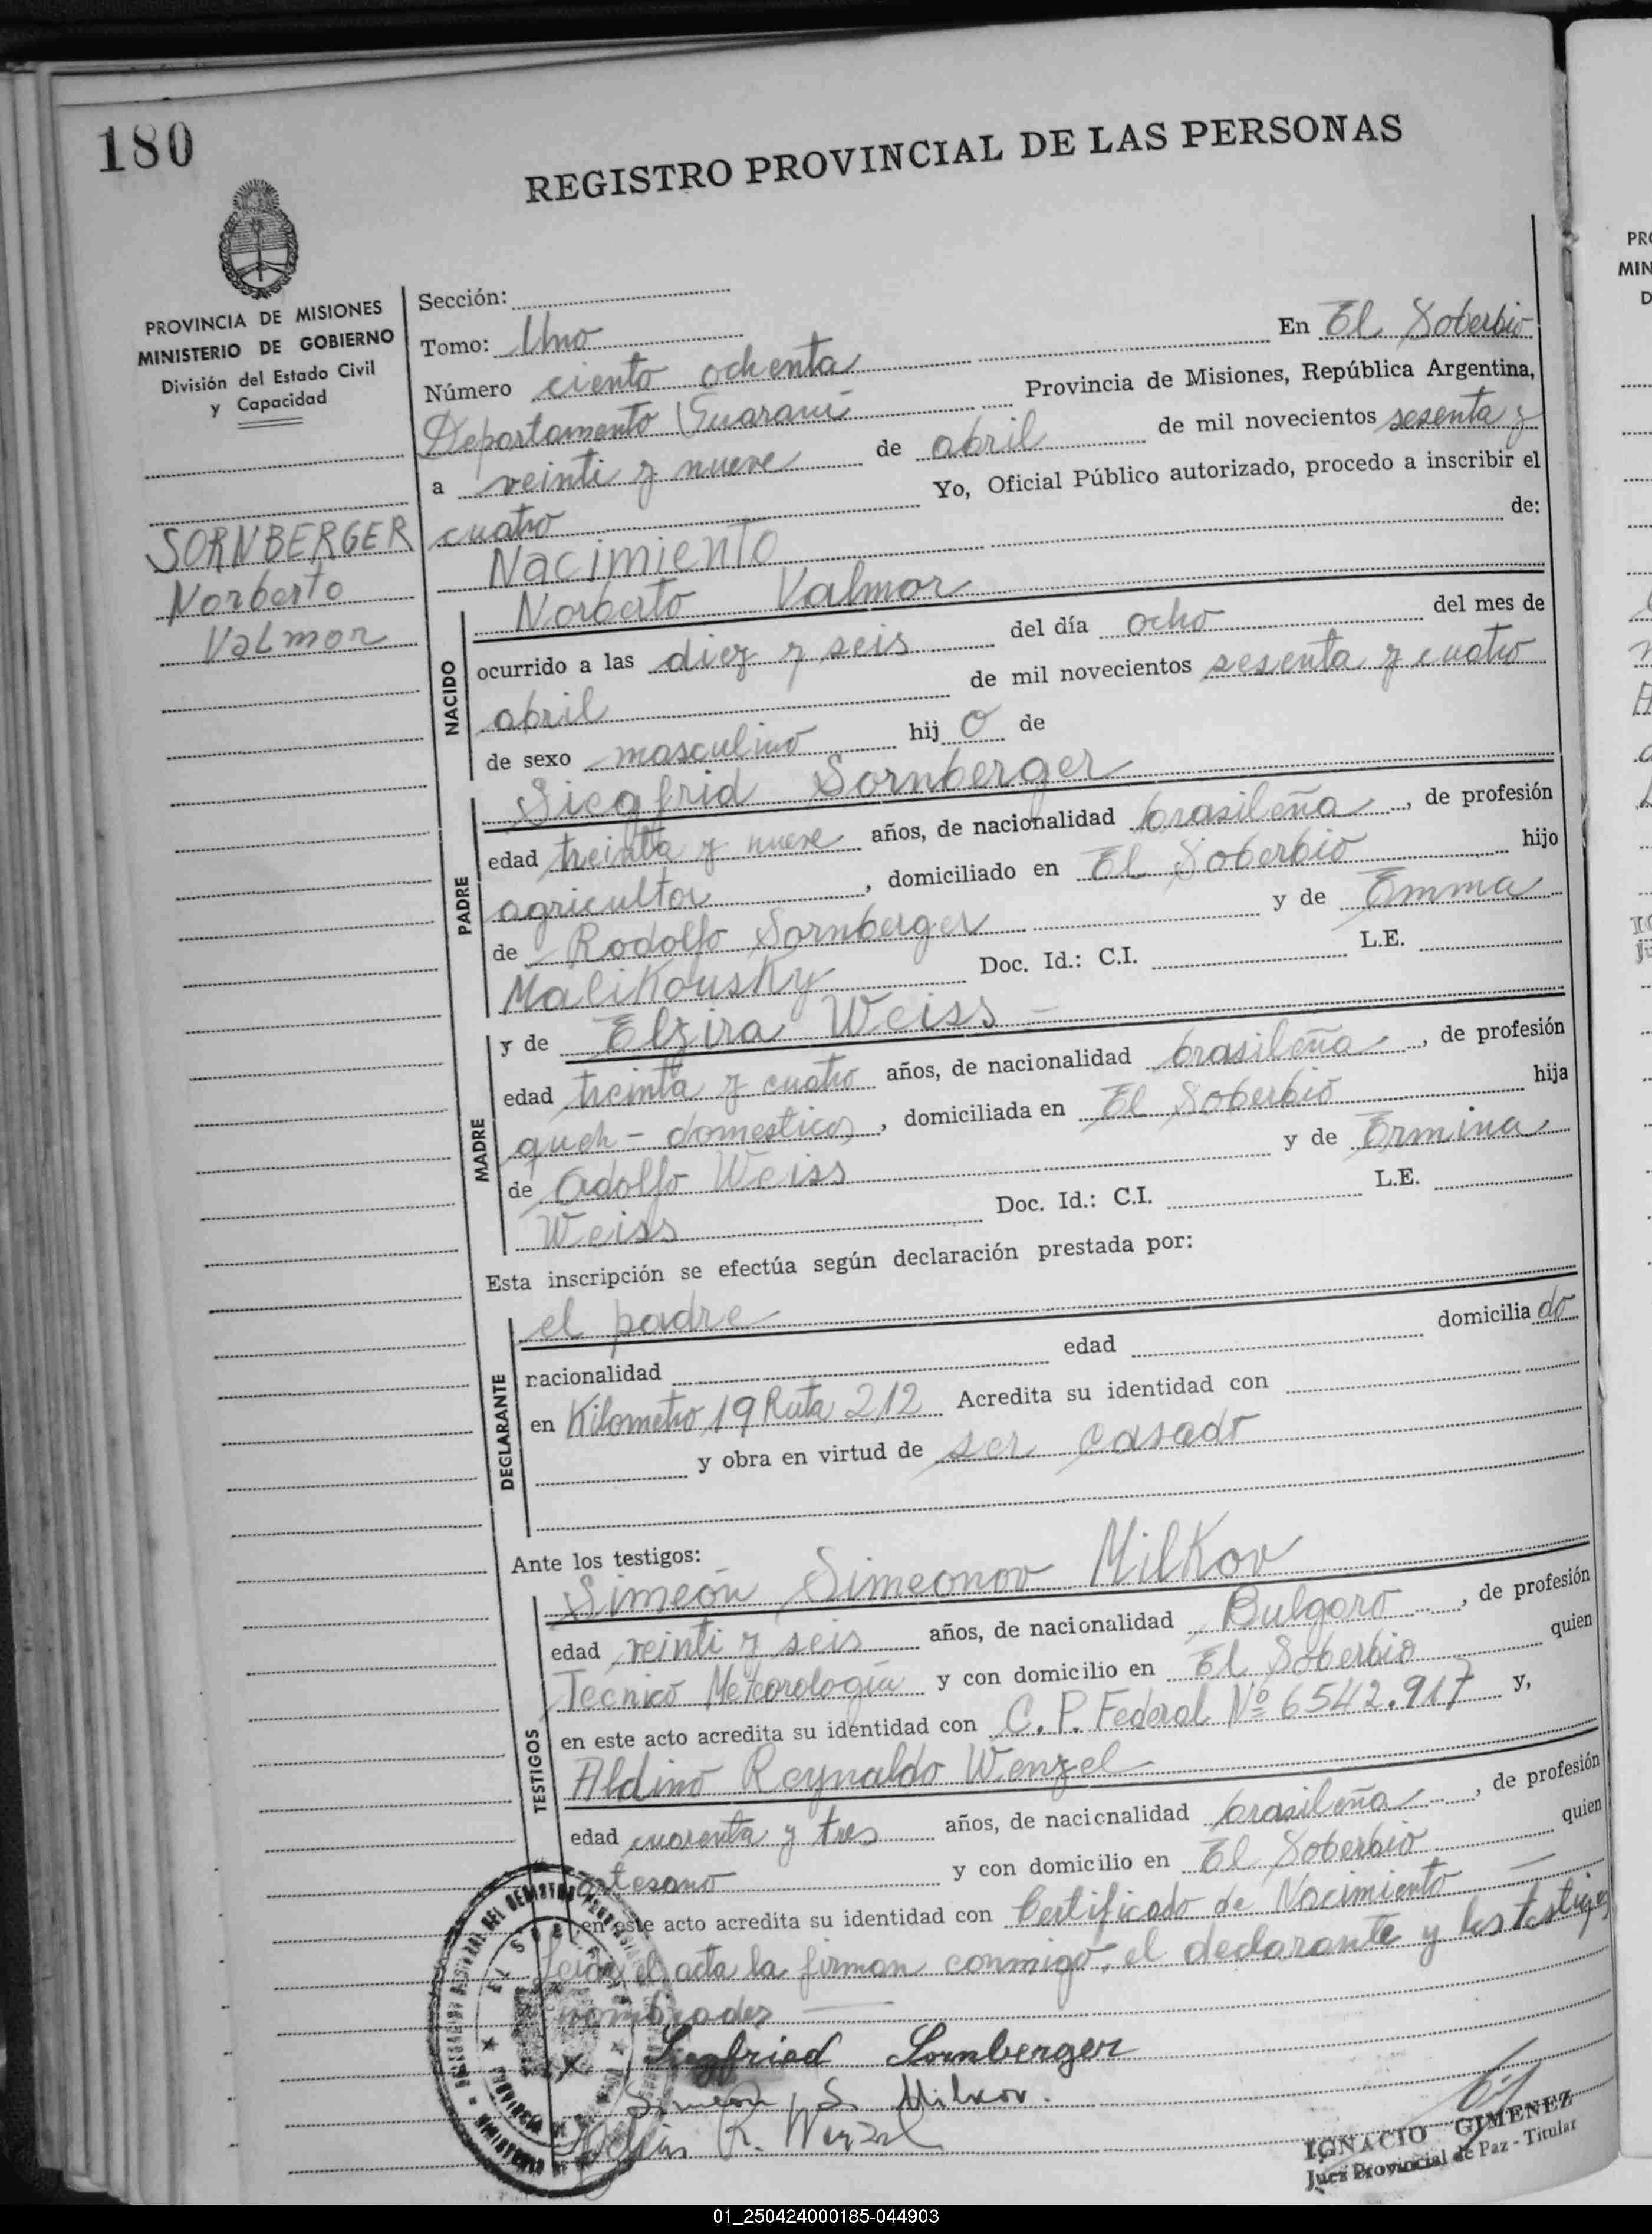 180
REGISTRO PROVINCIAL DE LAS PERSONAS
PROVINCIA DE MISIONES
MINISTERIO DE GOBIERNO
División del Estado Civil
y Capacidad
SORNBERGER
Norberto
Valmor
Sección:
Tomo: Uno
Número ciento ochenta En El Soberbio
Departamento Guaraní Provincia de Misiones, República Argentina,
a veinti y nueve de abril de mil novecientos sesenta y
cuatro Yo, Oficial Público autorizado, procedo a inscribir el
Nacimiento de:
NACIDO
Norberto Valmor
ocurrido a las diez y seis del día ocho del mes de
abril de mil novecientos sesenta y cuatro
de sexo masculino hij o de
PADRE
Siegfrid Sornberger
edad treinta y nueve años, de nacionalidad brasileña, de profesión
agricultor, domiciliado en El Soberbio hijo
de Rodolfo Sornberger y de Emma
Malikousky Doc. Id.: C.I. L.E.
MADRE
y de Elzira Weiss -
edad treinta y cuatro años, de nacionalidad brasileña, de profesión
queh - domesticos, domiciliada en El Soberbio hija
de Adolfo Weiss y de Ermina
Weiss Doc. Id.: C.I. L.E.
Esta inscripción se efectúa según declaración prestada por:
DECLARANTE
el padre
nacionalidad edad domicilia do
en Kilometro 19 Ruta 212 Acredita su identidad con
y obra en virtud de ser casado
Ante los testigos:
TESTIGOS
Simeón Simeonov Milkov
edad veinti y seis años, de nacionalidad Bulgaro, de profesión
Tecnico Meteorología y con domicilio en El Soberbio quien
en este acto acredita su identidad con C. P. Federal Nº 6542.917 y,
Aldino Reynaldo Wenzel
edad cuarenta y tres años, de nacionalidad brasileña, de profesión
artesano y con domicilio en El Soberbio quien
en este acto acredita su identidad con Certificado de Nacimiento
el acta la firman conmigo, el declarante y los testigos
nombrados
Siegfried Sornberger
Simeón S. Milkov.
R. Wenzel
IGNACIO GIMENEZ
Juez Provincial de Paz - Titular
01_250424000185-044903